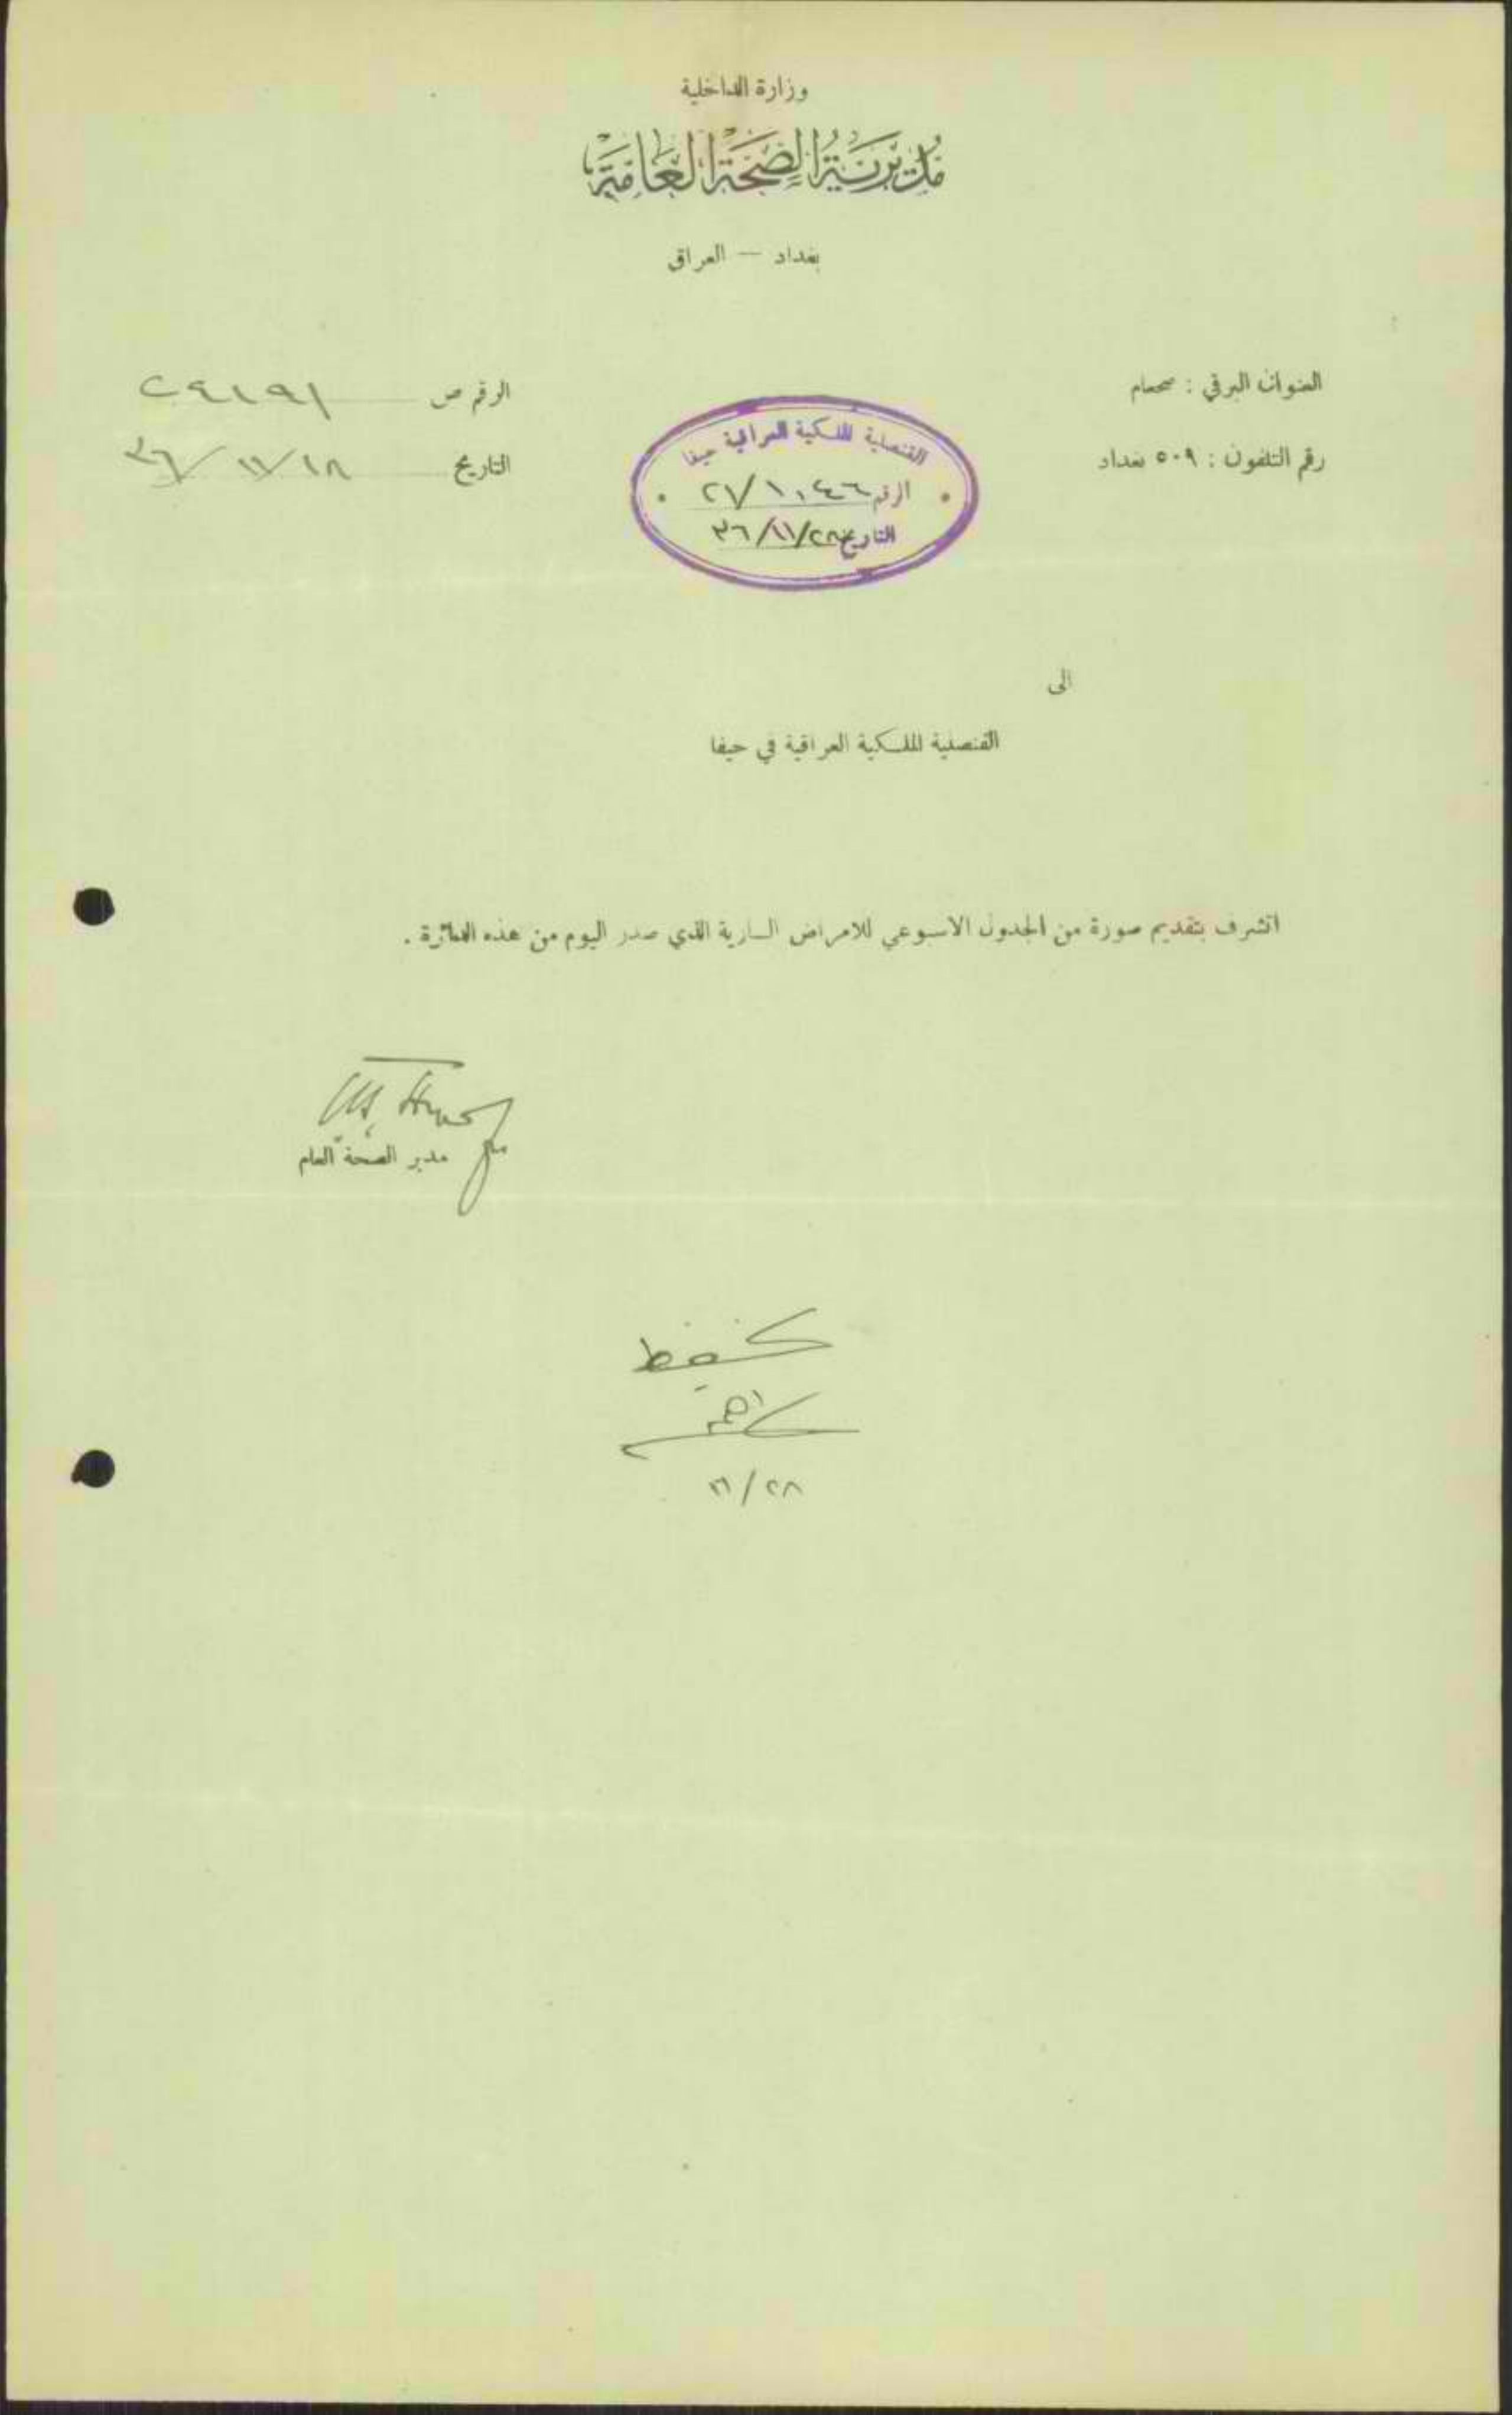 وزارة الداخلية
مديرية الصحة العامة
بغداد — العراق
العنوان البرقي : صحعام
الرقم ص ٢٤١٩١
رقم التلفون : ٥٠٩ بغداد
التاريخ ١٨/١١/٣٦
القنصلية الملكية العراقية حيفا
الرقم ٢٧/١٠٤٦
التاريخ ٢٨/١١/٣٦
الى
القنصلية الملكية العراقية في حيفا
اتشرف بتقديم صورة من الجدول الاسبوعي للامراض السارية الذي صدر اليوم من هذه الدائرة .
مدير الصحة العام
تحفظ
٢٨/١١